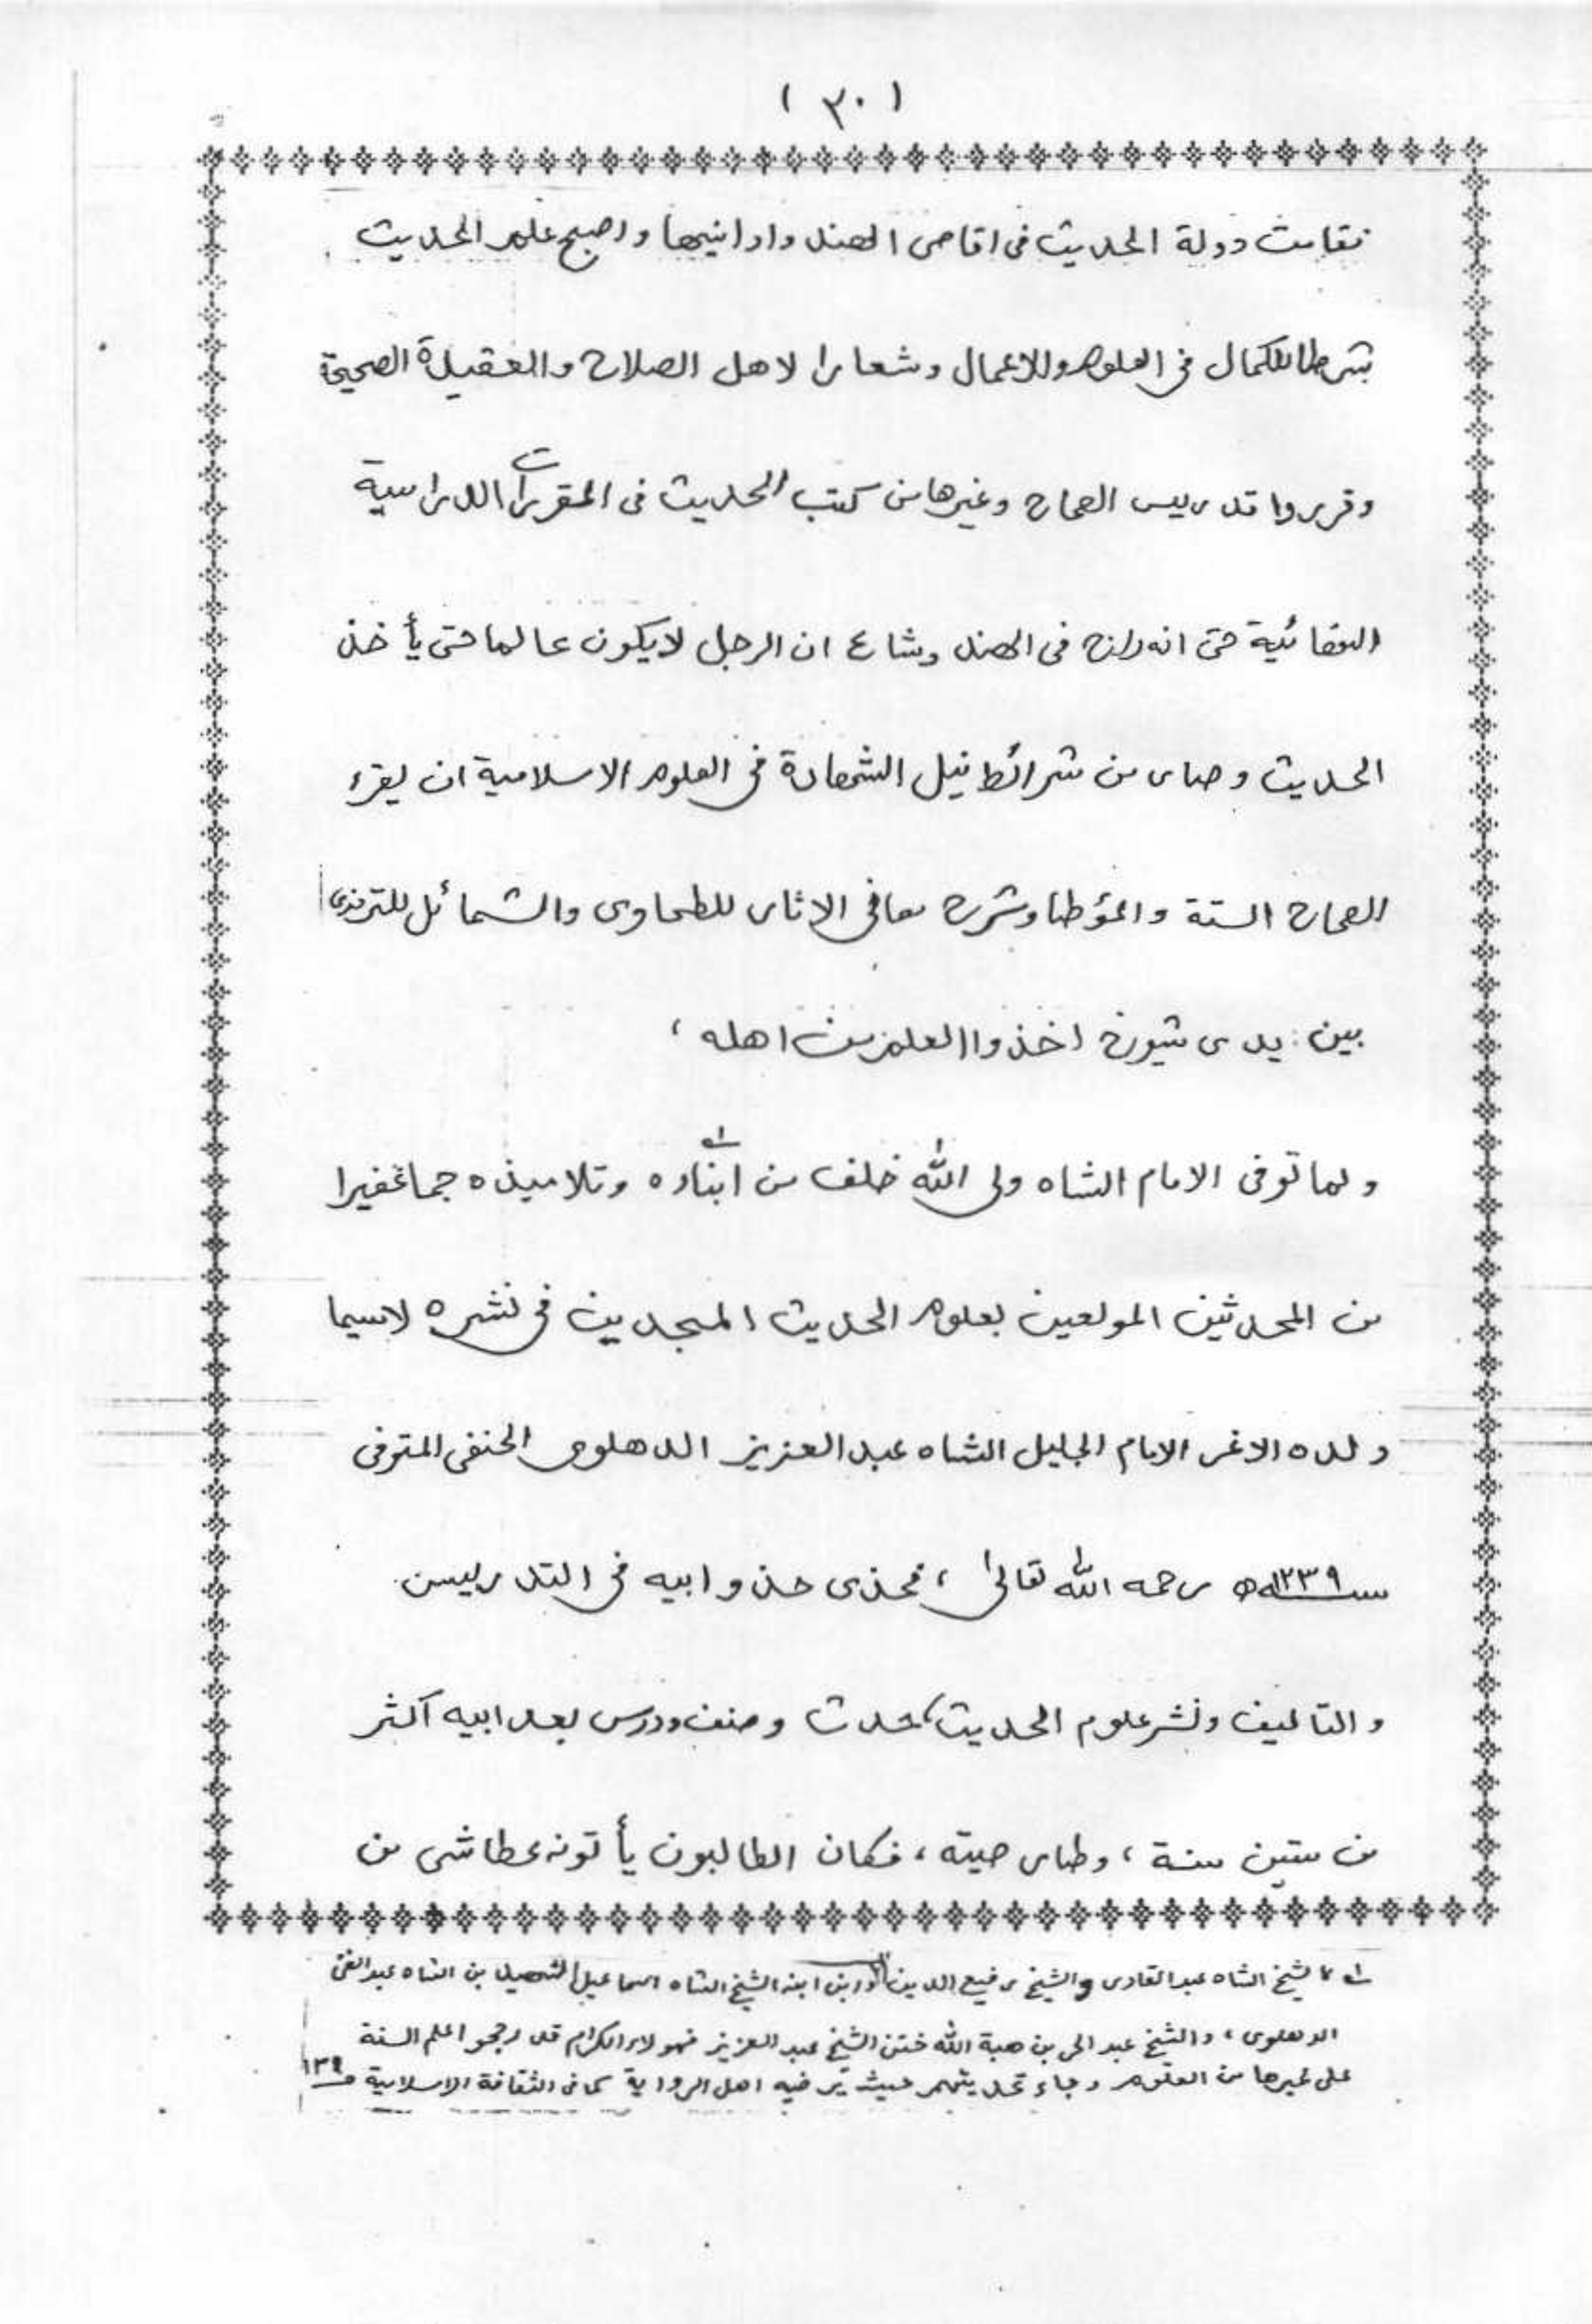 ( ٣٠ )
فقامت دولة الحديث فى اقاصى الهند وادانيها واصبح علم الحديث
شرطا للكمال فى العلوم والاعمال وشعارا لاهل الصلاح والعقيدة الصحيحة
وقرروا تدريس الصحاح وغيرها من كتب الحديث فى المقررات الدراسية
النهائية حتى انه راج فى الهند وشاع ان الرجل لايكون عالما حتى يأخذ
الحديث وصار من شرائط نيل الشهادة فى العلوم الاسلامية ان يقرء
الصحاح الستة والمؤطا وشرح معانى الاثار للطحاوى والشمائل للترمذى
بين يدى شيوخ اخذوا العلم من اهله ،
ولما توفى الامام الشاه ولى الله خلف من ابناءه ١ وتلاميذه جما غفيرا
من المحدثين المولعين بعلوم الحديث المجدين فى نشره لاسيما
ولده الاغر الامام الجليل الشاه عبد العزيز الدهلوى الحنفى المتوفى
سنة ١٢٣٩ھ رحمه الله تعالىٰ ، فحذى حذو ابيه فى التدريس
والتاليف ونشر علوم الحديث، حدث وصنف ودرس بعد ابيه اكثر
من ستين سنة ، وطار صيته ، فكان الطالبون يأتونه عطاشى من
١ كالشيخ الشاه عبد القادر والشيخ رفيع الدين وابن ابنه الشيخ الشاه اسماعيل الشهيد بن الشاه عبد الغنى
الدهلوى ، والشيخ عبد الحى بن هبة الله ختن الشيخ عبد العزيز فهولاء الكرام قد رجحوا علم السنة
على غيرها من العلوم وجاء تحديثهم حيث يرتضيه اهل الرواية كما فى الثقافة الاسلامية